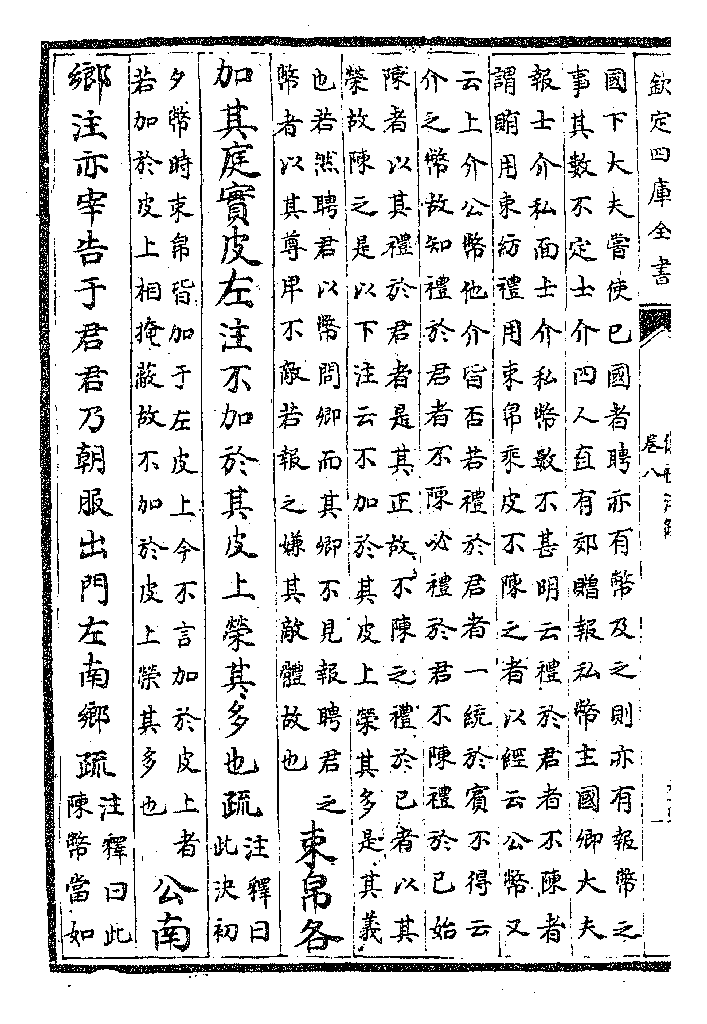 欽定四庫全書
卷八
國下大夫嘗使已國者聘亦有幣及之則亦有報幣之
事其數不定士介四人直有郊贈報私幣主國卿大夫
報士介私面士介私幣數不甚明云禮於君者不陳者
謂賄用束紡禮用束帛乘皮不陳之者以經云公幣又
云上介公幣他介皆否若禮於君者一統於賓不得云
介之幣故知禮於君者不陳必禮於君不陳禮於已始
陳者以其禮於君者是其正故不陳之禮於已者以其
榮故陳之是以下注云不加於其皮上榮其多是其義
也若然聘君以幣問卿而其卿不見報聘君之
幣者以其尊卑不敵若報之嫌其敵體故也
束帛各
加其庭實皮左注不加於其皮上榮其多也疏
注釋曰
此決初
夕幣時束帛皆加于左皮上今不言加於皮上者
若加於皮上相掩蔽故不加於皮上榮其多也
公南
鄉注亦宰告于君君乃朝服出門左南鄉疏
注釋曰此
陳幣當如